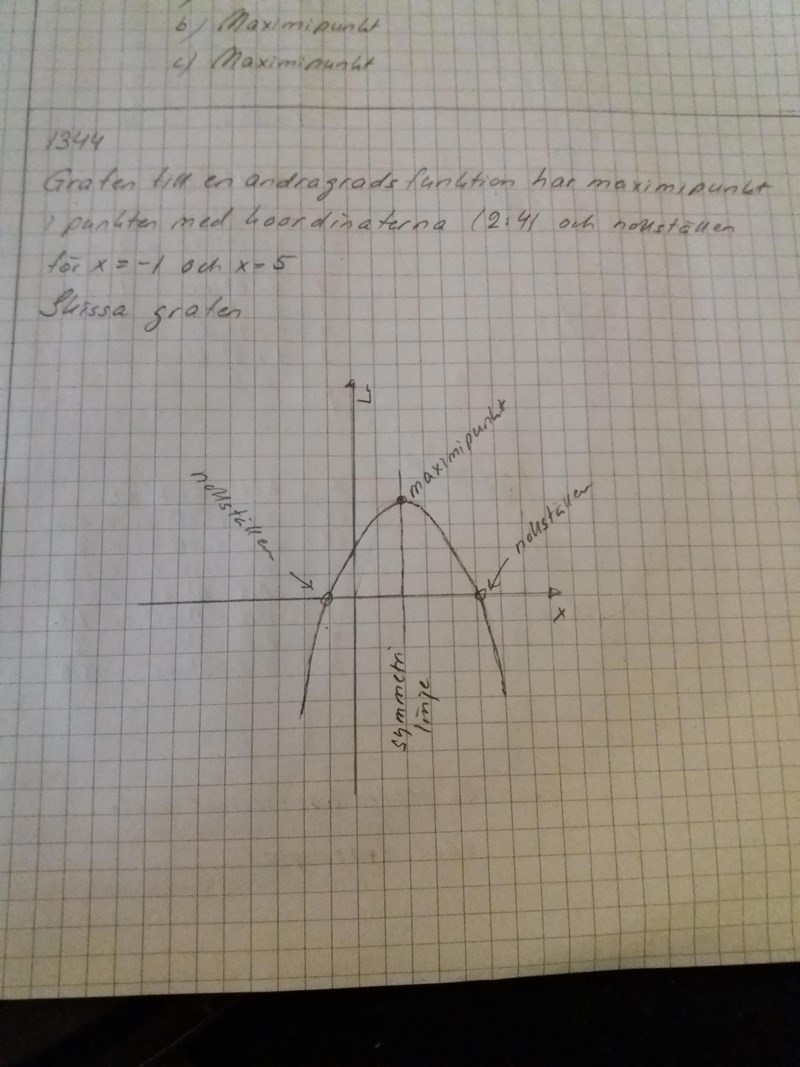 b) Maximipunkt
c) Maximipunkt
1344
Grafen till en andragradsfunktion har maximipunkt
i punkten med koordinaterna (2;4) och nollställen
för x = -1 och x = 5
Skissa grafen
y
maximipunkt
nollställen
nollställen
x
symmetri
linje